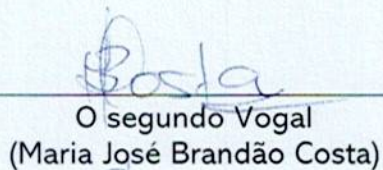 Costa
O segundo Vogal
(Maria José Brandão Costa)